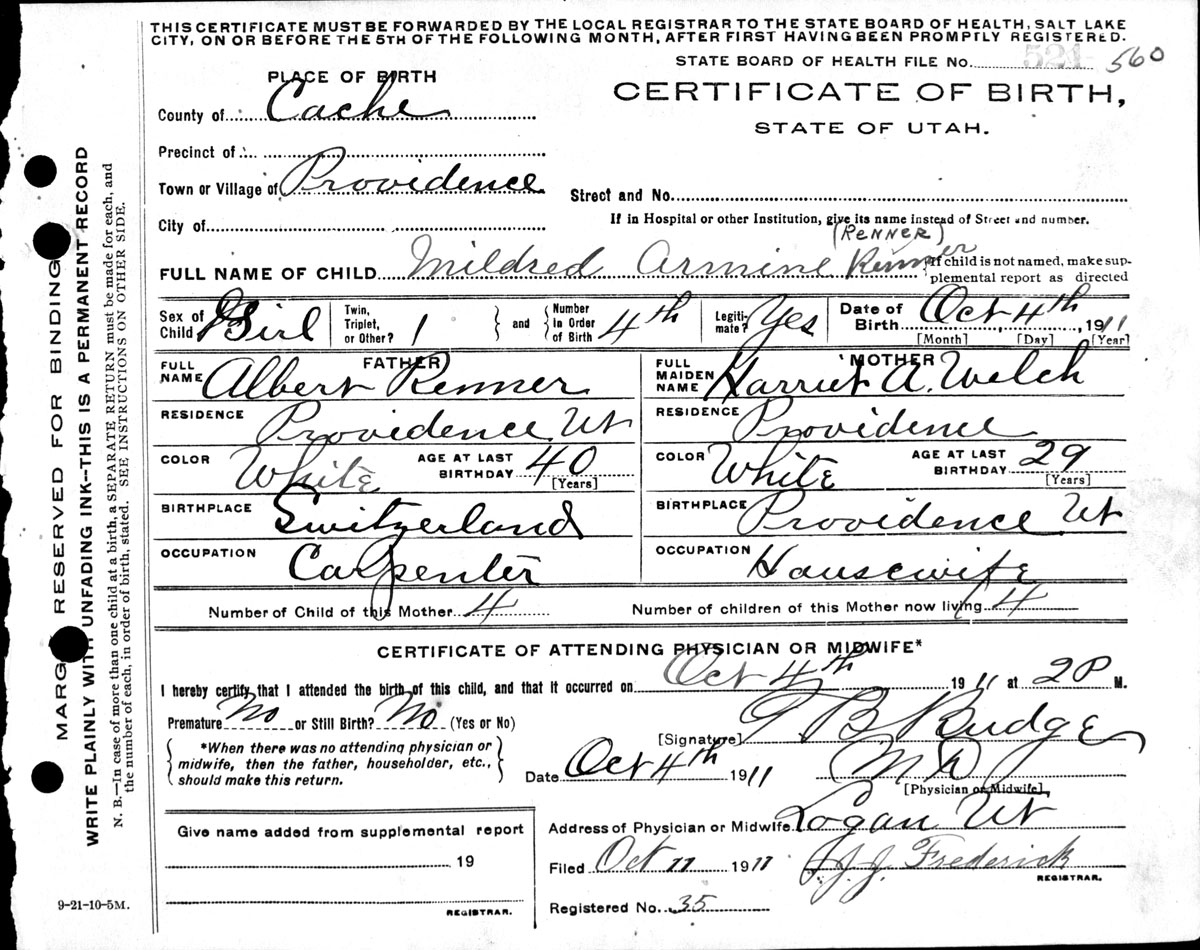 THIS CERTIFICATE MUST BE FORWARDED BY THE LOCAL REGISTRAR TO THE STATE BOARD OF HEALTH, SALT LAKE
CITY, ON OR BEFORE THE 5TH OF THE FOLLOWING MONTH, AFTER FIRST HAVING BEEN PROMPTLY REGISTERED.
STATE BOARD OF HEALTH FILE No. 521 560
PLACE OF BIRTH
CERTIFICATE OF BIRTH,
STATE OF UTAH.
County of Cache
Precinct of
Town or Village of Providence
Street and No.
City of
If in Hospital or other Institution, give its name instead of Street and number.
(RENNER)
FULL NAME OF CHILD Mildred Armine Renner
If child is not named, make sup-
plemental report as directed
Sex of Child Girl Twin, Triplet, or Other? 1 and Number in Order of Birth 4th Legiti-mate? Yes Date of Birth Oct 4th, 1911
[Month] [Day] [Year]
FATHER 'MOTHER
FULL NAME Albert Renner FULL MAIDEN NAME Harriet A. Welch
RESIDENCE Providence Ut RESIDENCE Providence
COLOR White AGE AT LAST BIRTHDAY 40 [Years] COLOR White AGE AT LAST BIRTHDAY 29 [Years]
BIRTHPLACE Switzerland BIRTHPLACE Providence Ut
OCCUPATION Carpenter OCCUPATION Housewife
Number of Child of this Mother 4 Number of children of this Mother now living 4
CERTIFICATE OF ATTENDING PHYSICIAN OR MIDWIFE*
I hereby certify that I attended the birth of this child, and that it occurred on Oct 4th 1911 at 2 P M.
Premature No or Still Birth? No (Yes or No)
[Signature] T B Budge
*When there was no attending physician or
midwife, then the father, householder, etc.,
should make this return.
Date Oct 4th 1911 M D
[Physician or Midwife]
Address of Physician or Midwife Logan Ut
Give name added from supplemental report
19
REGISTRAR.
Filed Oct 11 1911 J. J. Frederick
REGISTRAR.
Registered No. 35
9-21-10-5M.
MARGIN RESERVED FOR BINDING
WRITE PLAINLY WITH UNFADING INK--THIS IS A PERMANENT RECORD
N. B.—In case of more than one child at a birth, a SEPARATE RETURN must be made for each, and
the number of each, in order of birth, stated. SEE INSTRUCTIONS ON OTHER SIDE.